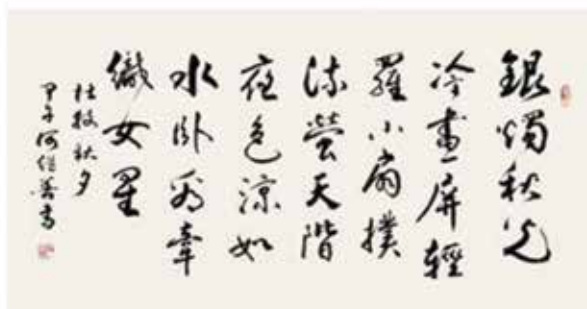 銀燭秋光
冷畫屏輕
羅小扇撲
流螢天階
夜色涼如
水卧看牽
織女星
杜牧秋夕
甲午何繼善書